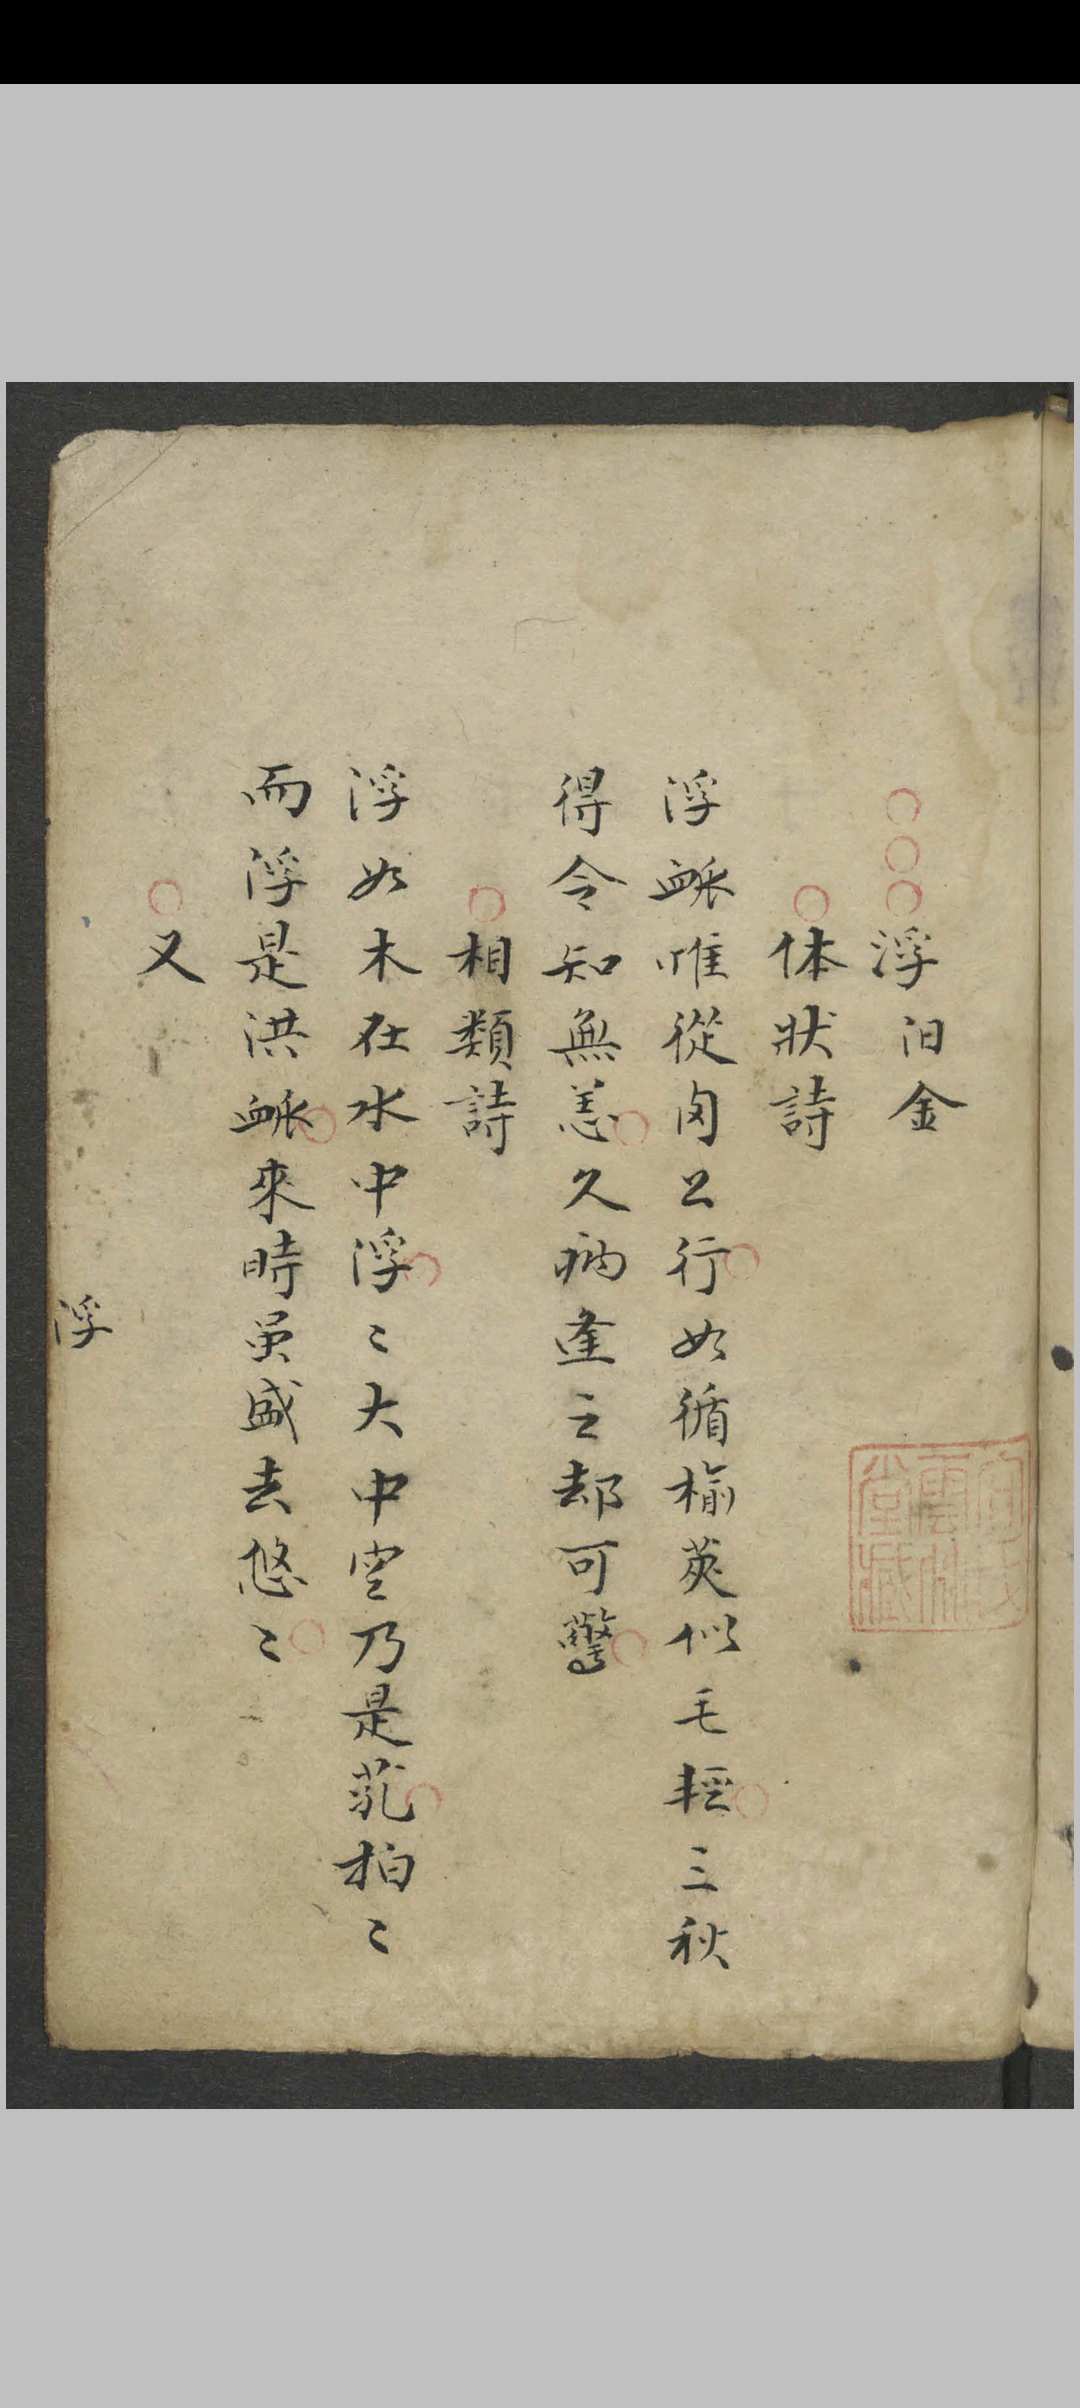 浮 日金
体狀詩
浮脈唯從肉上行如循榆莢似毛輕三秋
得令知無恙久病逢之却可驚
相類詩
浮如木在水中浮〻大中空乃是芤柏〻
而浮是洪脈來時虽盛去悠〻
又
浮